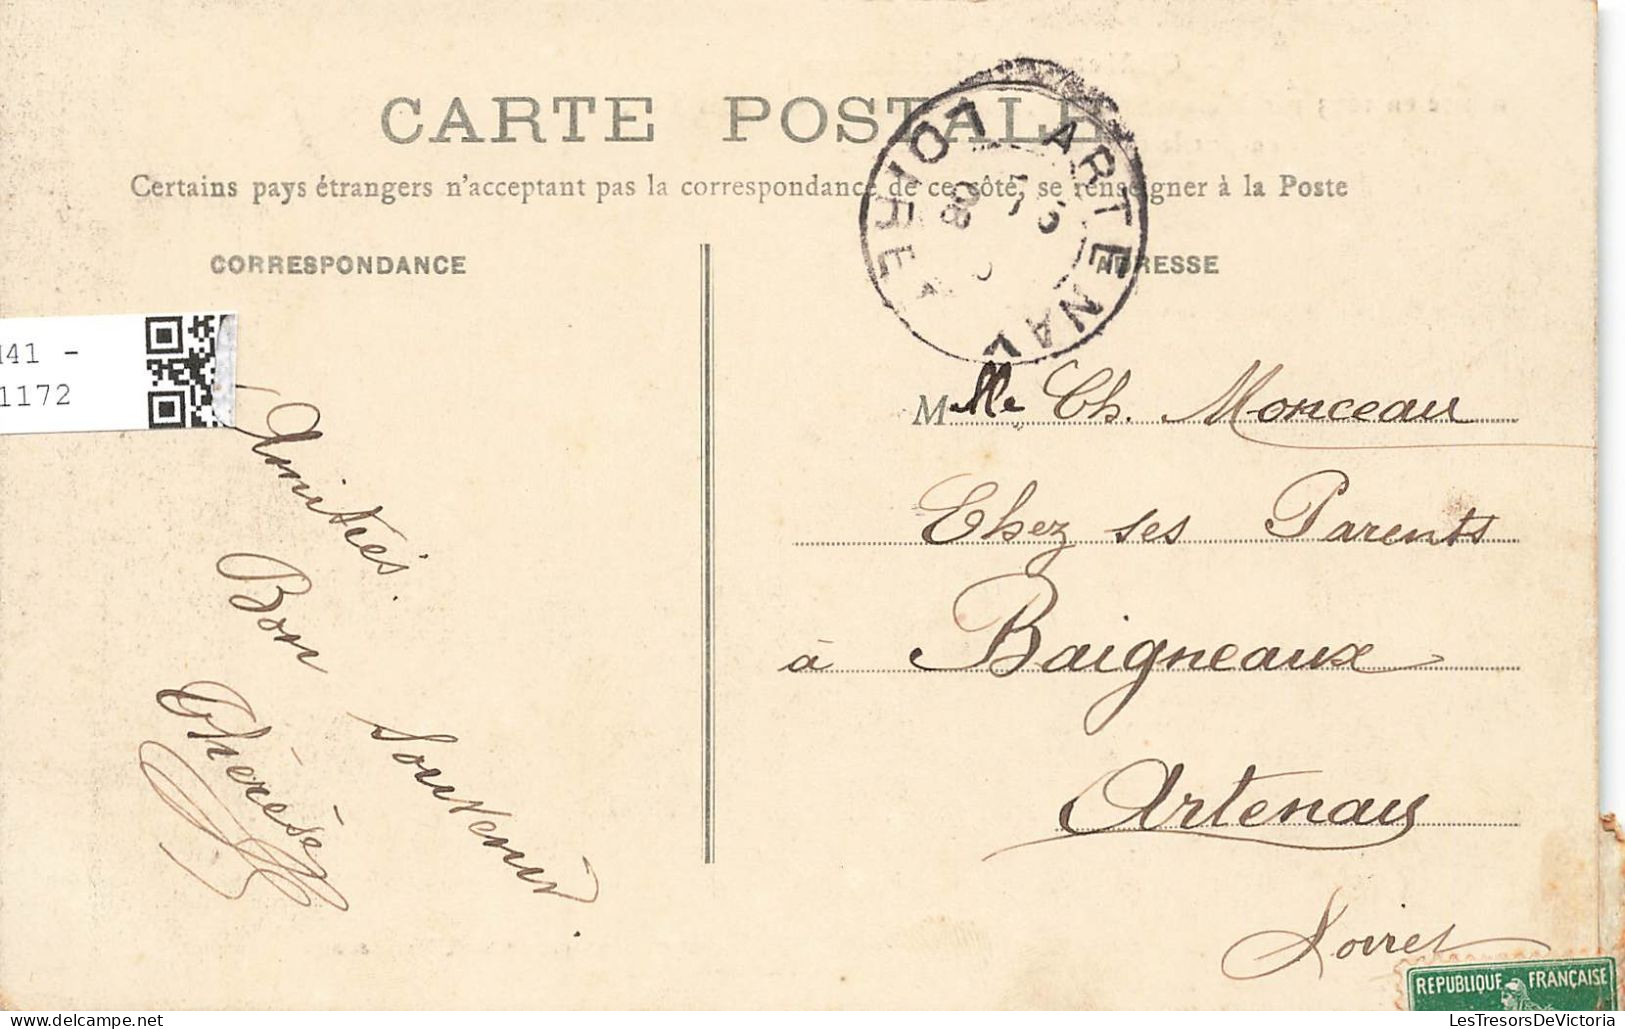 CARTE POSTALE
Certains pays étrangers n'acceptent pas la correspondance de ce côté, se renseigner à la Poste
CORRESPONDANCE
ADRESSE
ARTENAY
LOIRET
08
41 -
1172
Amitiés.
Bon
Souvenir.
Thérèse
Mlle Ch. Monceau
Chez ses Parents
à Baigneaux
Artenay
Loiret
REPUBLIQUE FRANÇAISE
LesTresorsDeVictoria